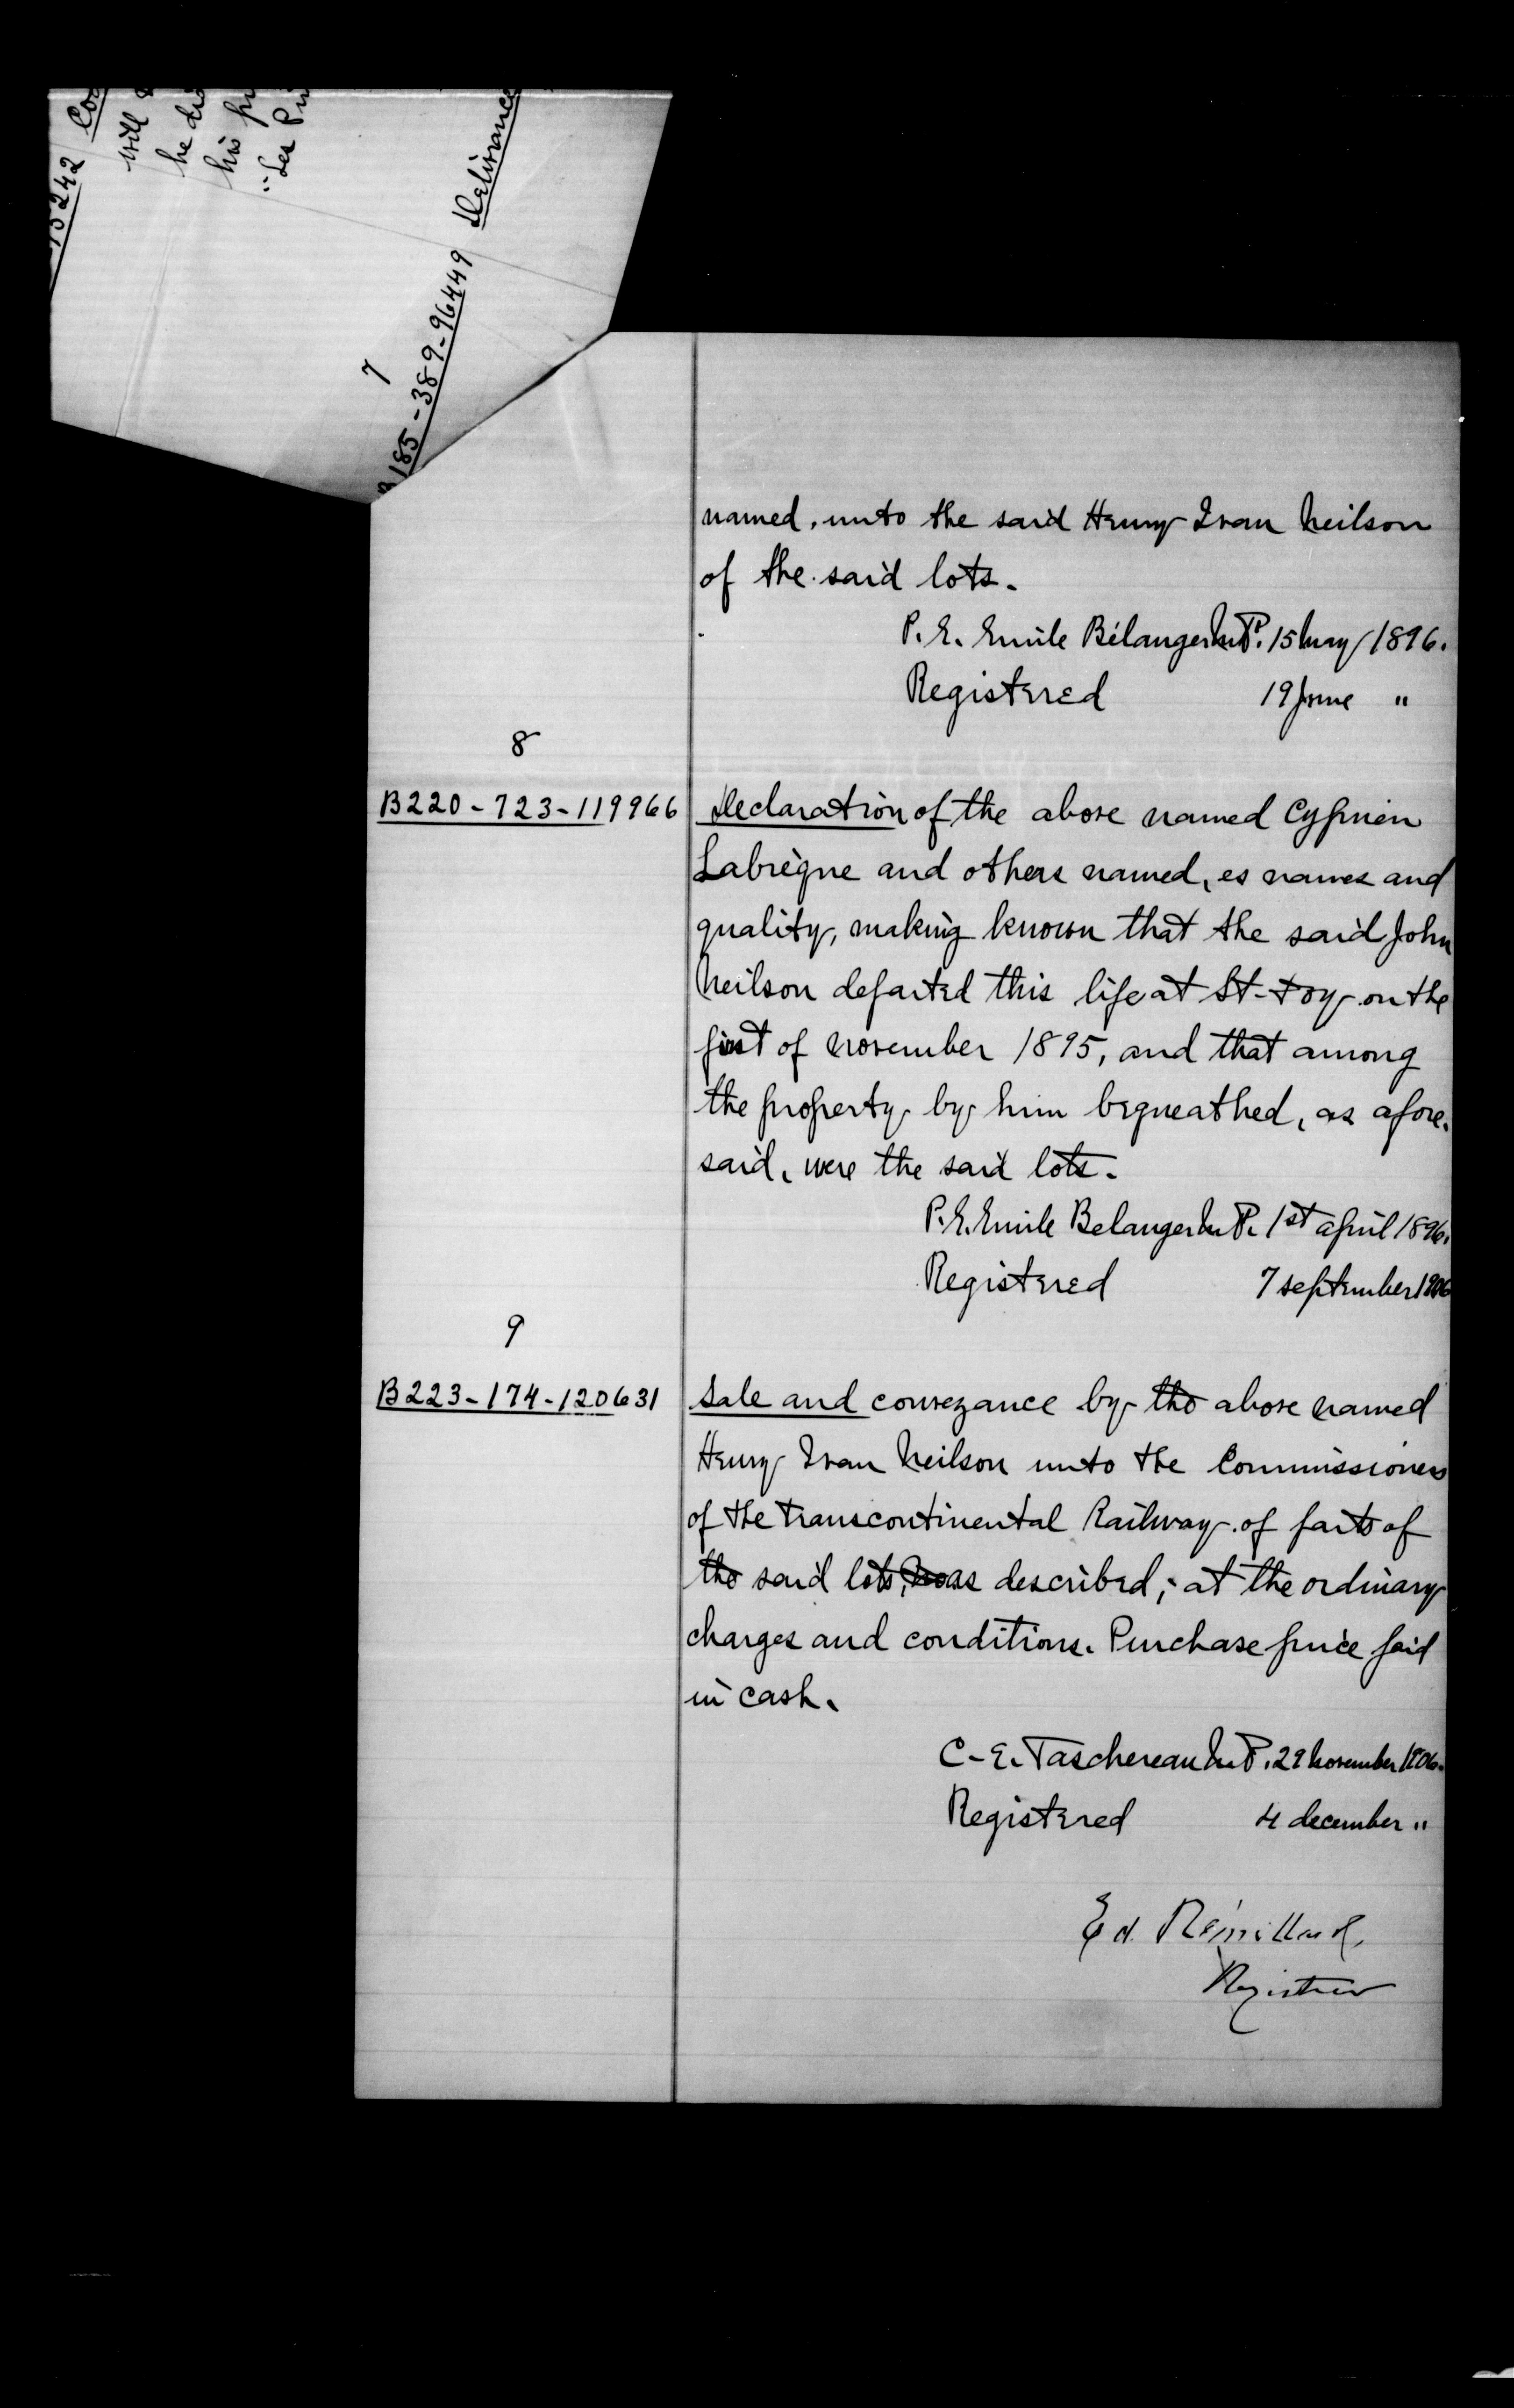 15242 Co
will
he di
his pr
"Les Pr
7
B185-389-96449 Delivrance
named, unto the said Henry Ivan Neilson
of the said lots.
P. E. Emile Bélanger N.P. 15 May 1896.
Registered 19 June "
8
B220-723-119966 Declaration of the above named Cyprien
Labrèque and others named, es names and
quality, making known that the said John
Neilson departed this life at St-Foy on the
first of november 1895, and that among
the property by him bequeathed, as afore-
said, were the said lots.
P. E. Emile Belanger N.P. 1st april 1896.
Registered 7 september 1906
9
B223-174-120631 Sale and conveyance by the above named
Henry Ivan Neilson unto the Commissioners
of the transcontinental Railway of parts of
the said lots, as described; at the ordinary
charges and conditions. Purchase price paid
in cash.
C-E. Taschereau N.P. 29 November 1906.
Registered 4 december "
Ed. Rémillard,
Registrar